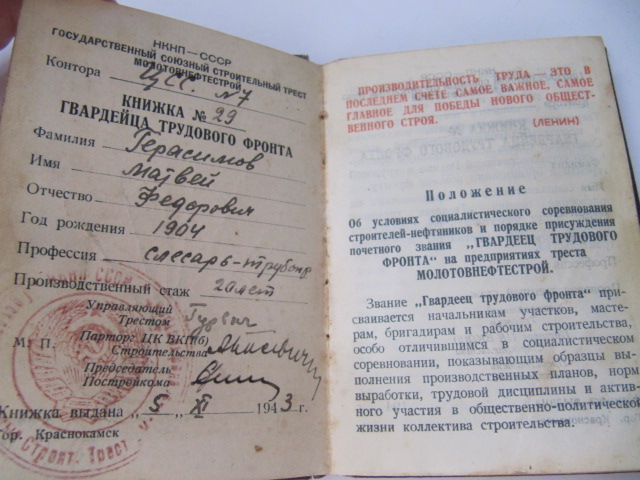 НКНП—СССР
ГОСУДАРСТВЕННЫЙ СОЮЗНЫЙ СТРОИТЕЛЬНЫЙ ТРЕСТ
МОЛОТОВНЕФТЕСТРОЙ
Контора
КНИЖКА № 29
ГВАРДЕЙЦА ТРУДОВОГО ФРОНТА
Фамилия Герасимов
Имя Матвей
Отчество Федорович
Год рождения 1904
Профессия слесарь-трубопр
Производственный стаж 20 лет
Управляющий
Трестом Гуревич
М. П.
Парторг ЦК ВКП(б)
Строительства
Председатель
Постройкома
Книжка выдана „5„ XI 1943 г.
Гор. Краснокамск
ПРОИЗВОДИТЕЛЬНОСТЬ ТРУДА — ЭТО В
ПОСЛЕДНЕМ СЧЕТЕ САМОЕ ВАЖНОЕ, САМОЕ
ГЛАВНОЕ ДЛЯ ПОБЕДЫ НОВОГО ОБЩЕСТ-
ВЕННОГО СТРОЯ. (ЛЕНИН)
Положение
Об условиях социалистического соревнования
строителей-нефтяников и порядке присуждения
почетного звания „ГВАРДЕЕЦ ТРУДОВОГО
ФРОНТА" на предприятиях треста
МОЛОТОВНЕФТЕСТРОЙ.
Звание „Гвардеец трудового фронта" при-
сваивается начальникам участков, масте-
рам, бригадирам и рабочим строительства,
особо отличившимся в социалистическом
соревновании, показывающим образцы вы-
полнения производственных планов, норм
выработки, трудовой дисциплины и актив-
ного участия в общественно-политической
жизни коллектива строительства.